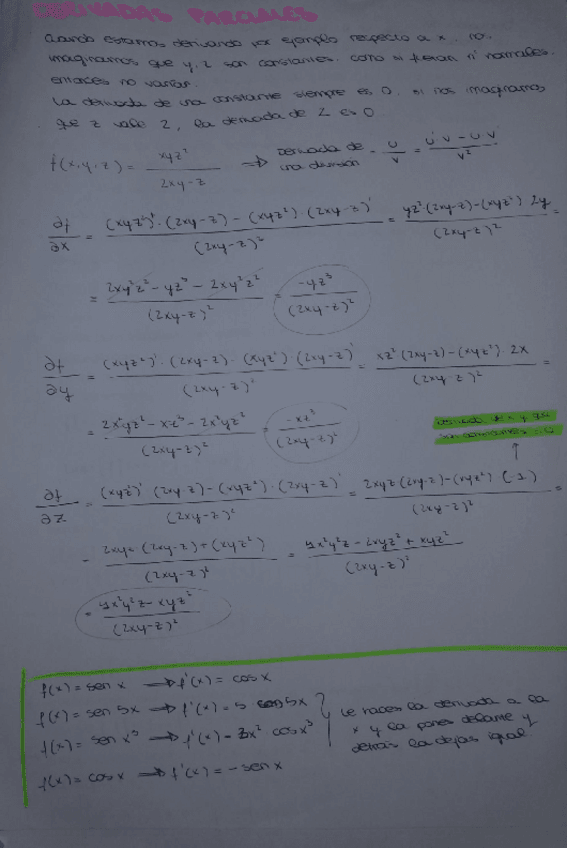 DERIVADAS PARCIALES
Cuando estamos derivando por ejemplo respecto a x, nos
imaginamos que y, z son constantes, como si fueran nº normales,
entonces no varían.
La derivada de una constante siempre es 0, si nos imaginamos
que z vale 2, la derivada de 2 es 0
f(x,y,z) = xyz²/(2xy-z) ⇒ Derivada de una división = u/v = (u'v - u·v')/v²
∂f/∂x = ((xyz²)'·(2xy-z) - (xyz²)·(2xy-z)')/(2xy-z)² = (yz²(2xy-z)-(xyz²)2y)/(2xy-z)² =
= (2xy²z² - yz³ - 2xy²z²)/(2xy-z)² = -yz³/(2xy-z)²
∂f/∂y = ((xyz²)'·(2xy-z)-(xyz²)(2xy-z)')/(2xy-z)² = (xz²(2xy-z)-(xyz²)·2x)/(2xy-z)² =
= (2x²yz² - xz³ - 2x²yz²)/(2xy-z)² = -xz³/(2xy-z)²
son constantes = 0
∂f/∂z = ((xyz²)'(2xy-z)-(xyz²)·(2xy-z)')/(2xy-z)² = (2xyz(2xy-z)-(xyz²)(-1))/(2xy-z)² =
= (2xyz(2xy-z)+(xyz²))/(2xy-z)² = (4x²y²z - 2xyz² + xyz²)/(2xy-z)²
= (4x²y²z - xyz²)/(2xy-z)²
f(x) = sen x ⇒ f'(x) = cos x
f(x) = sen 5x ⇒ f'(x) = 5 cos 5x
f(x) = sen x³ ⇒ f'(x) = 3x² cos x³
f(x) = cos x ⇒ f'(x) = -sen x
Le haces la derivada a la
x y la pones delante y
detrás la dejas igual